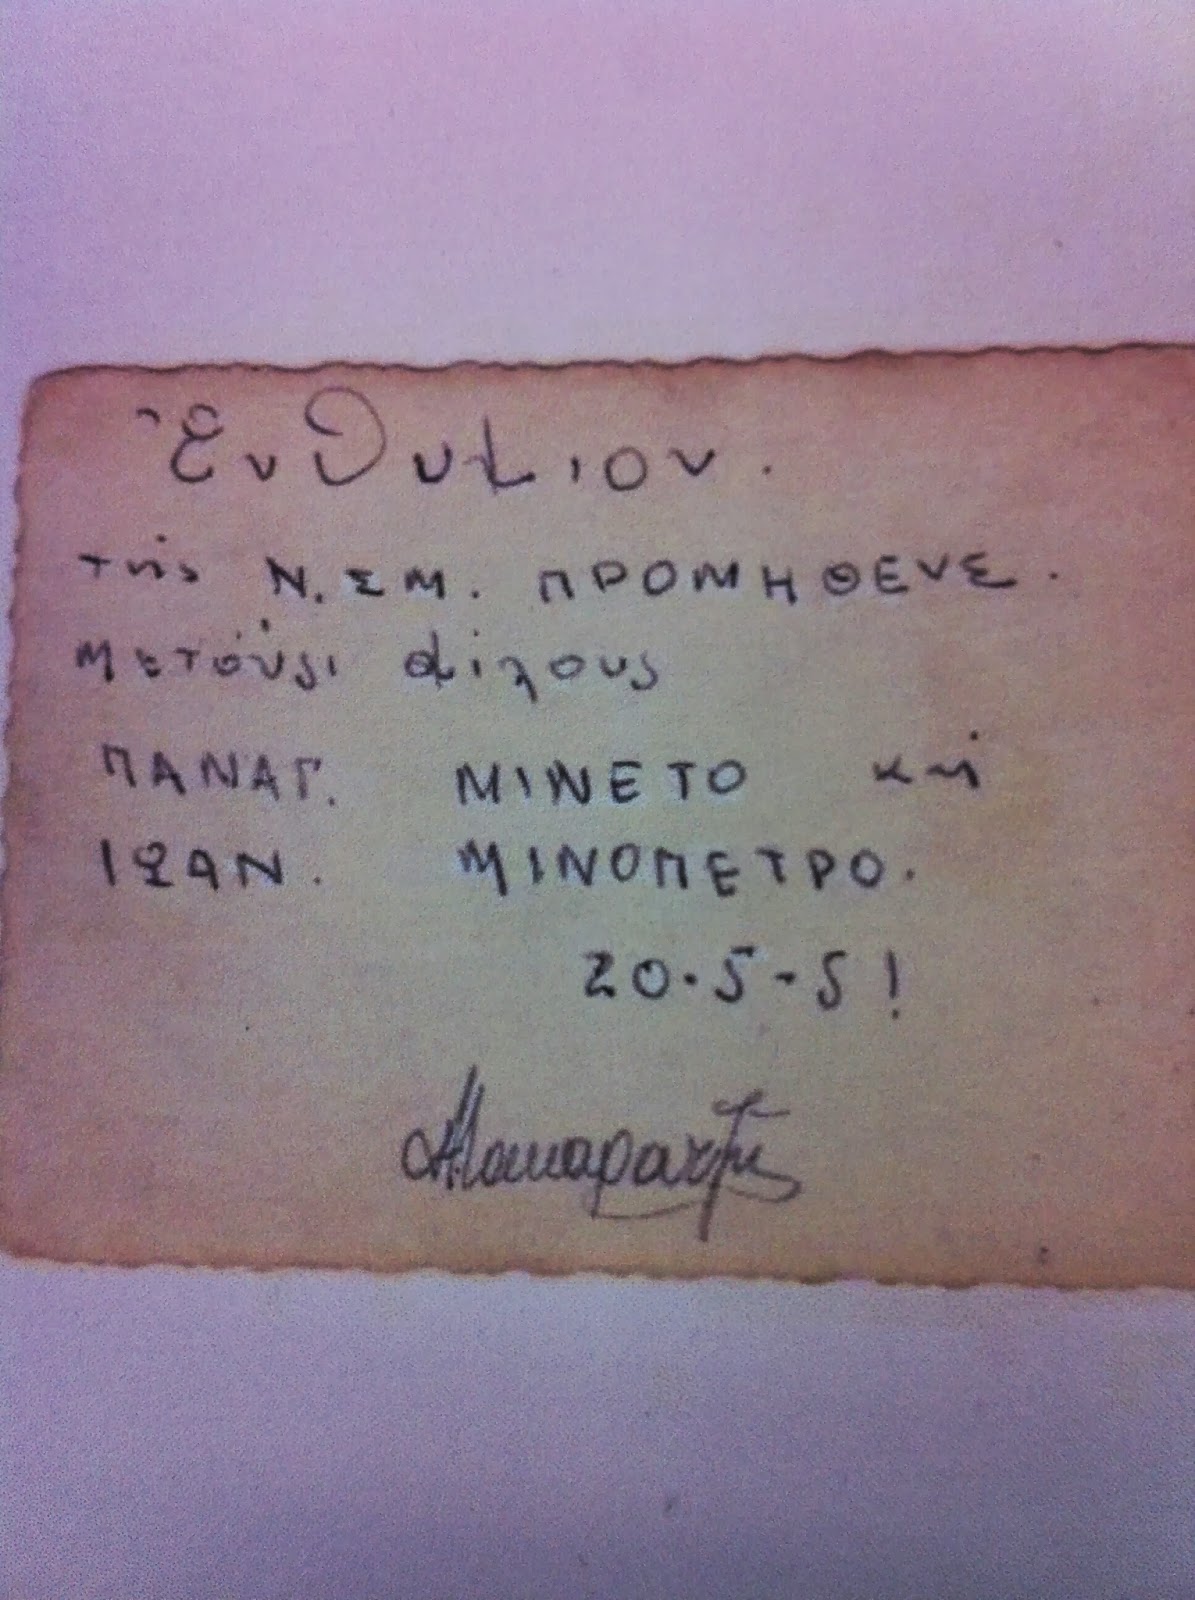 Ἐνθυμιον.
τής Ν.ΣΜ. ΠΡΟΜΗΘΕΥΣ.
Μετούς φίλους
ΠΑΝΑΓ. ΜΙΝΕΤΟ κή
ΙΩΑΝ. ΜΙΝΟΠΕΤΡΟ.
20.5-51